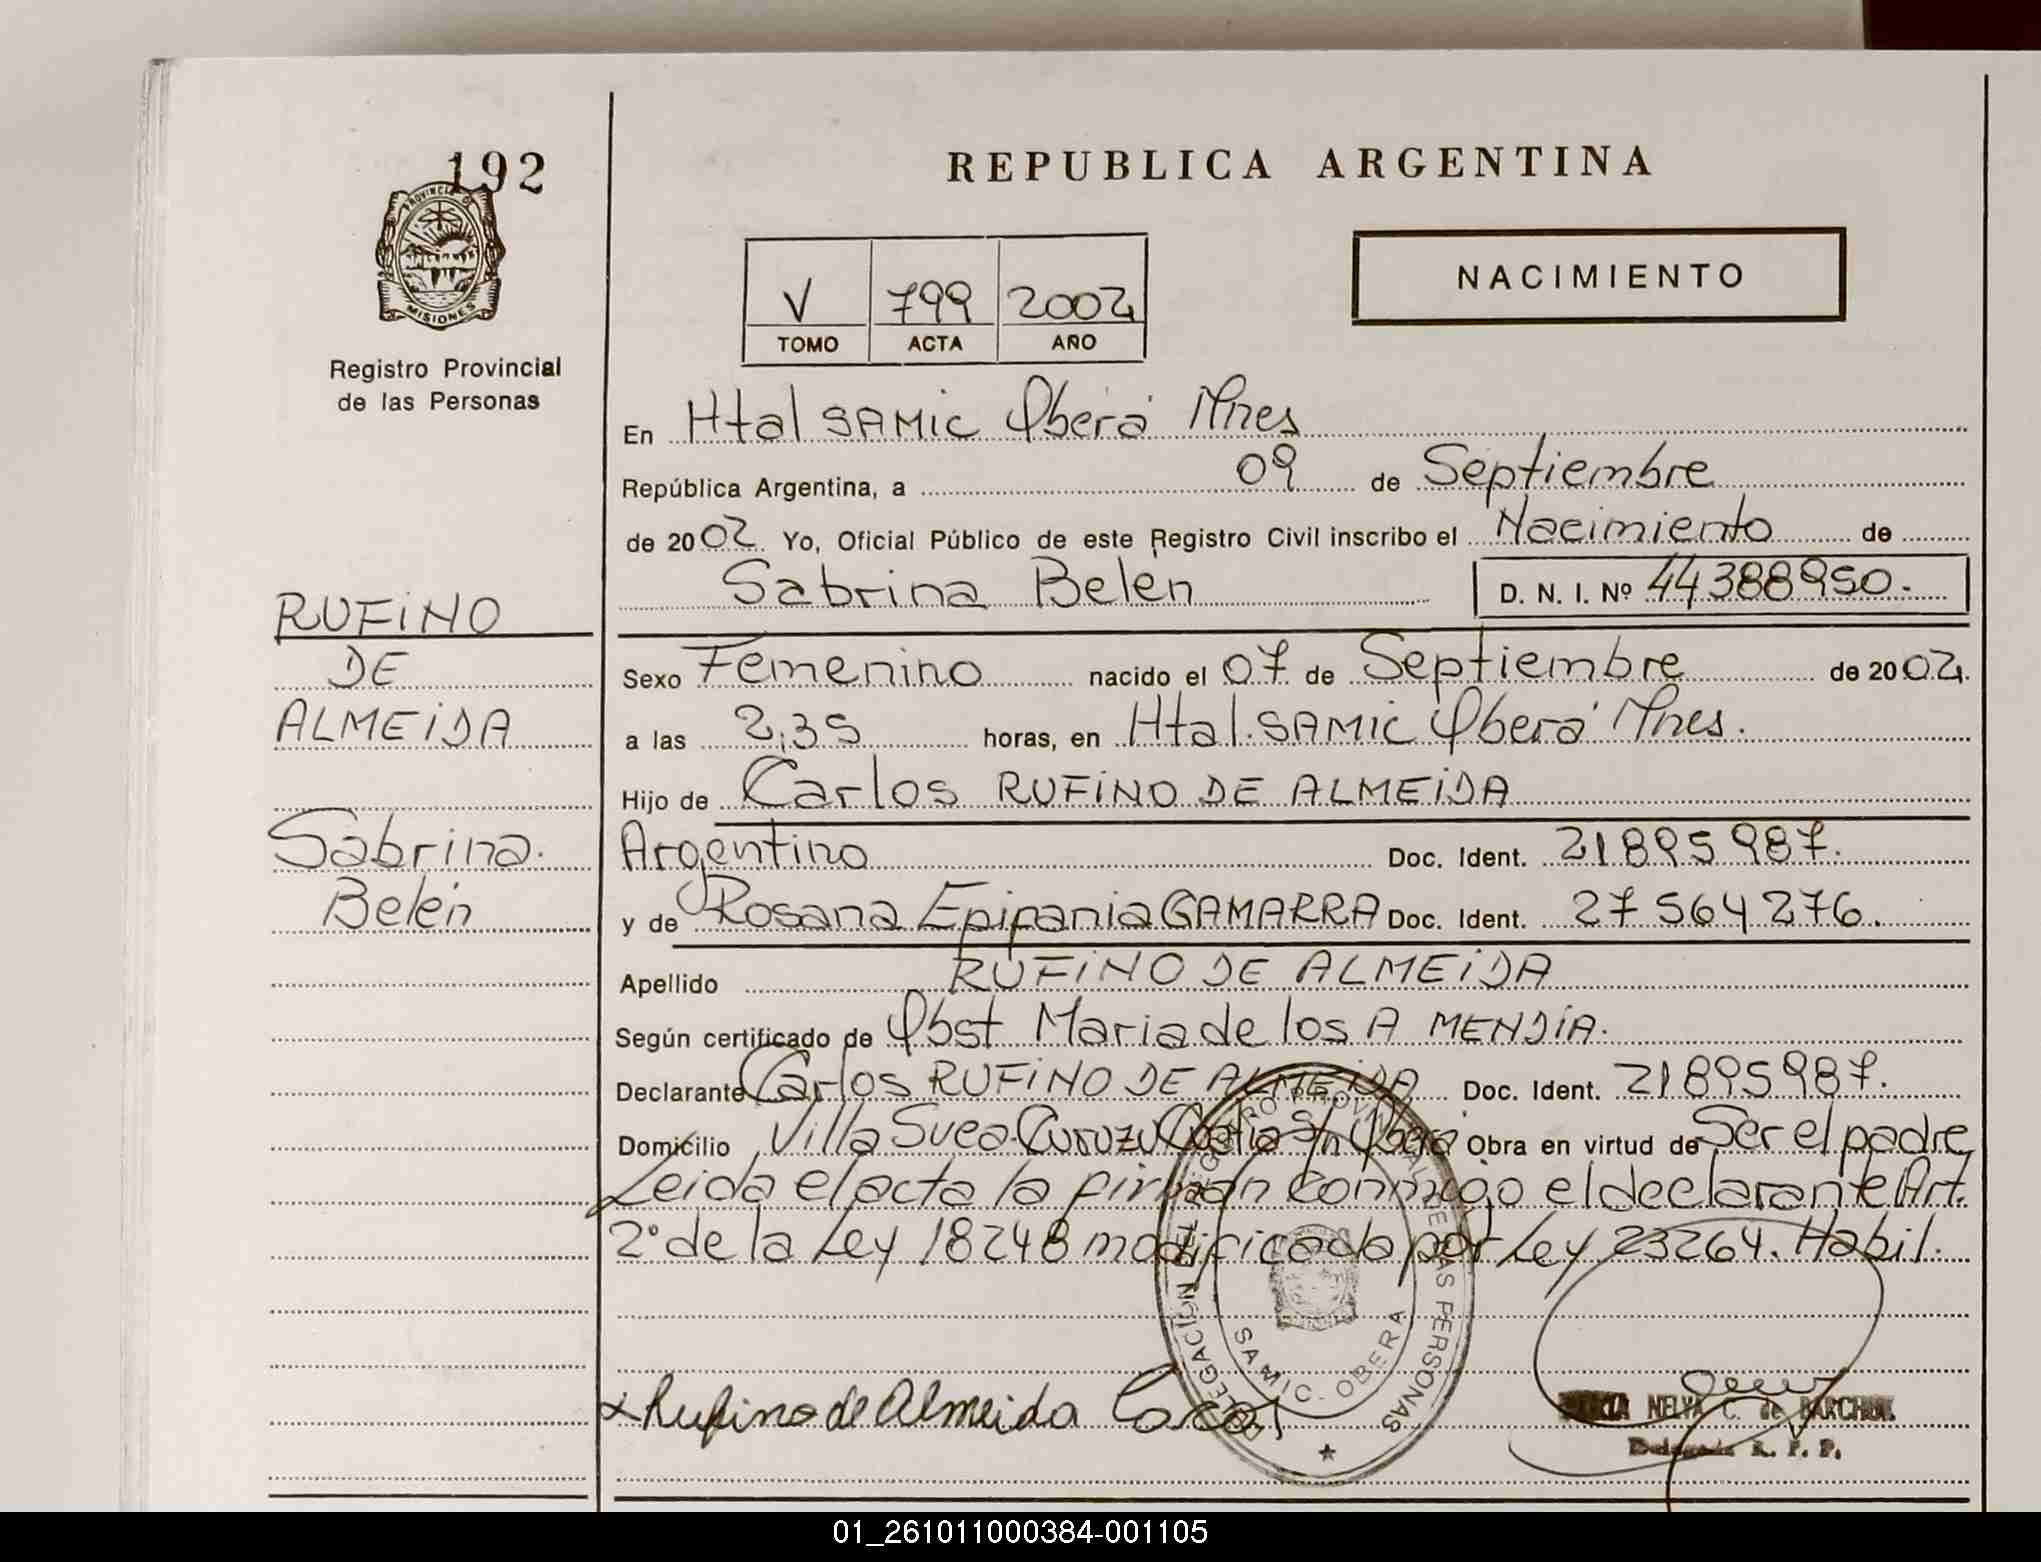 192
PROVINCIA DE
MISIONES
Registro Provincial
de las Personas
REPUBLICA ARGENTINA
NACIMIENTO
V 799 2002
TOMO ACTA AÑO
En Htal SAMic Oberá Mnes
República Argentina, a 09 de Septiembre
de 2002. Yo, Oficial Público de este Registro Civil inscribo el Nacimiento de
Sabrina Belén D. N. I. Nº 44388950.
RUFiNO
DE
ALMEiDA
Sabrina.
Belén
Sexo Femenino nacido el 07 de Septiembre de 2002.
a las 2,35 horas, en Htal. SAMic Oberá Mnes.
Hijo de Carlos RUFiNO DE ALMEiDA
Argentino Doc. Ident. 21895987.
y de Rosana Epifania GAMARRA Doc. Ident. 27564276.
Apellido RUFiNO DE ALMEiDA
Según certificado de Obst Maria de los A MENDiA.
Declarante Carlos RUFiNO DE ALMEiDA Doc. Ident. 21895987.
Domicilio Villa Svea. Curuzu Cuatia S/n Oberá Obra en virtud de Ser el padre
Leida el acta la firman conmigo el declarante Art.
2º de la Ley 18248 modificada por Ley 23264. Habil.
REGISTRO PROVINCIAL DE LAS PERSONAS
DELEGACIÓN
SAMIC. OBERA
x Rufino de Almeida
NELYA C. de BARCHUK
Delegada R. P. P.
01_261011000384-001105